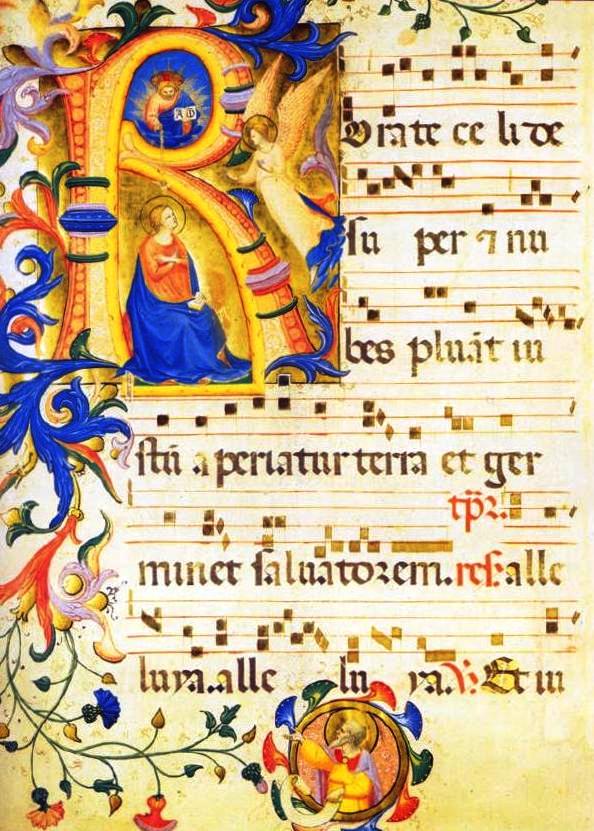 R
A Ω
Orate celi de
su per ⁊ nu
bes pluāt iu
stū aperiatur terra et ger
tp̄r.
minet saluatorem. res. alle
luya. alle lu ya. V. Et iu